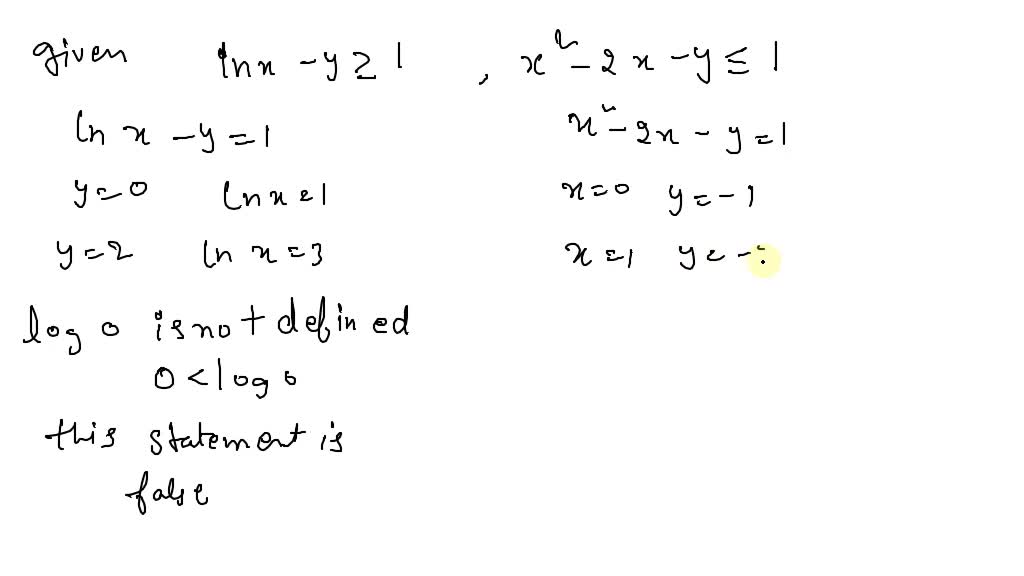 given ln x - y ≥ 1 , x² - 2x - y ≤ 1
ln x - y = 1
x² - 2x - y = 1
y = 0 ln x = 1
x = 0 y = -1
y = 2 ln x = 3
x = 1 y = -
log 0 is not defined
0 < log 0
this statement is
false